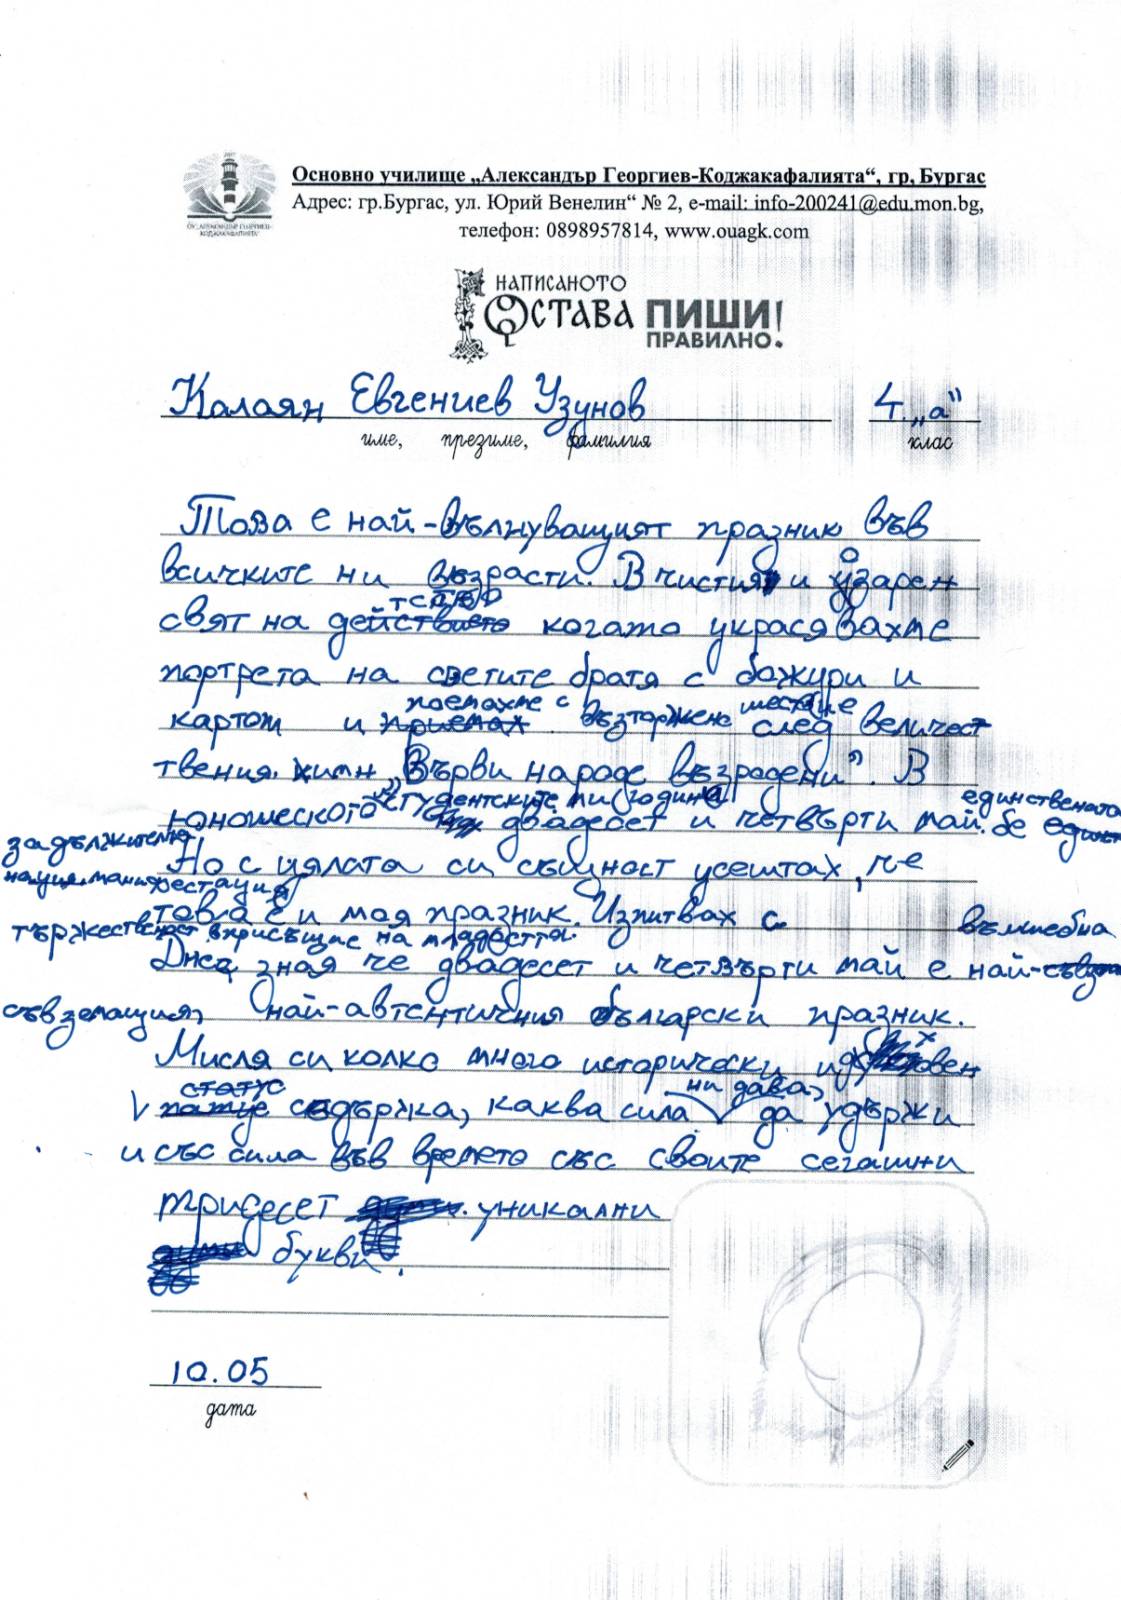 Основно училище „Александър Георгиев-Коджакафалията“, гр, Бургас
Адрес: гр.Бургас, ул. Юрий Венелин“ № 2, e-mail: info-200241@edu.mon.bg,
телефон: 0898957814, www.ouagk.com
ОУ „АЛЕКСАНДЪР ГЕОРГИЕВ-
КОДЖАКАФАЛИЯТА“
НАПИСАНОТО
ОСТАВА ПИШИ
ПРАВИЛНО!
Калоян Евгениев Узунов 4. „а“
име, презиме, фамилия клас
Това е най-вълнуващият празник във
всичките ни възрасти. В чистия и озарен
свят на детство когато украсявахме
портрета на светите братя с божури и
поемахме с шествие
картон и възторжено след величест
твения химн „Върви народе възродени“. В
студентските ми години единствената
юношеското двадесет и четвърти май бе
задължителна
Но с цялата си същност усештах, че
манифестация
това е и моя празник. Изпитвах с вълшебна
тържественост присъщие на младостта.
Днес, зная че двадесет и четвърти май е най-
съвземащия, най-автентичния български празник.
Мисля си колко много исторически и
статус ни дава,
съдържа, каква сила да удържи
и със сила във времето със своите сегашни
тридесет уникални
букви.
10.05
дата